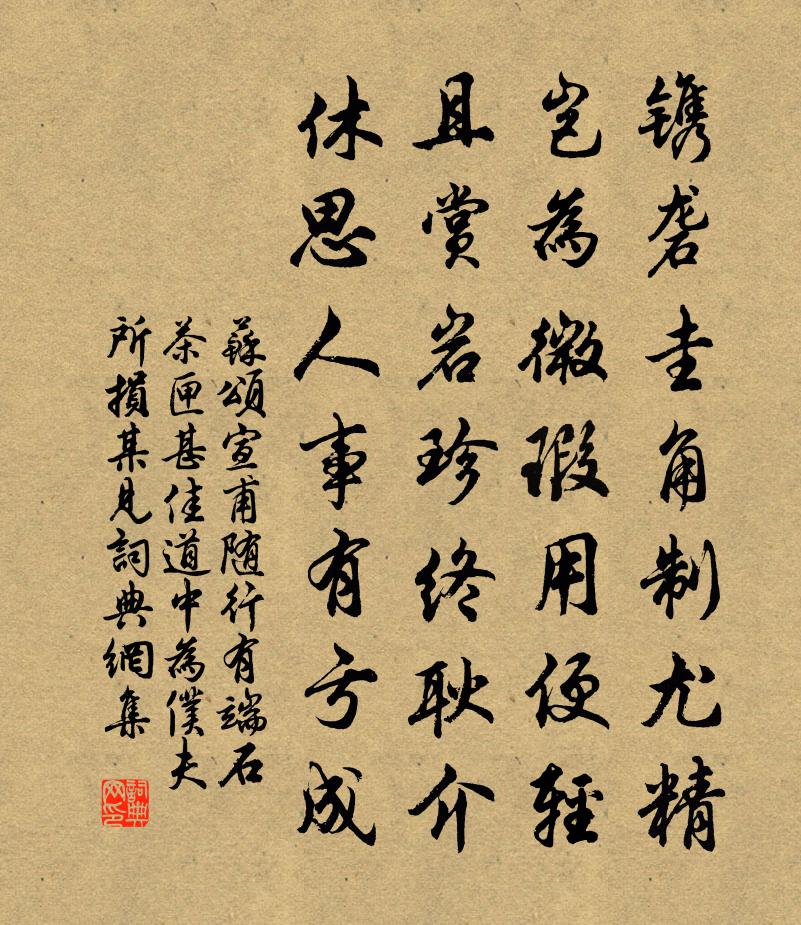 镌砻圭角制尤精
岂為微瑕用便輕
且赏岩珍终耿介
休思人事有亏成
蘇頌宣甫随行有端石
茶匣甚佳道中為僕夫
所損某見詞典網集
詞典网印